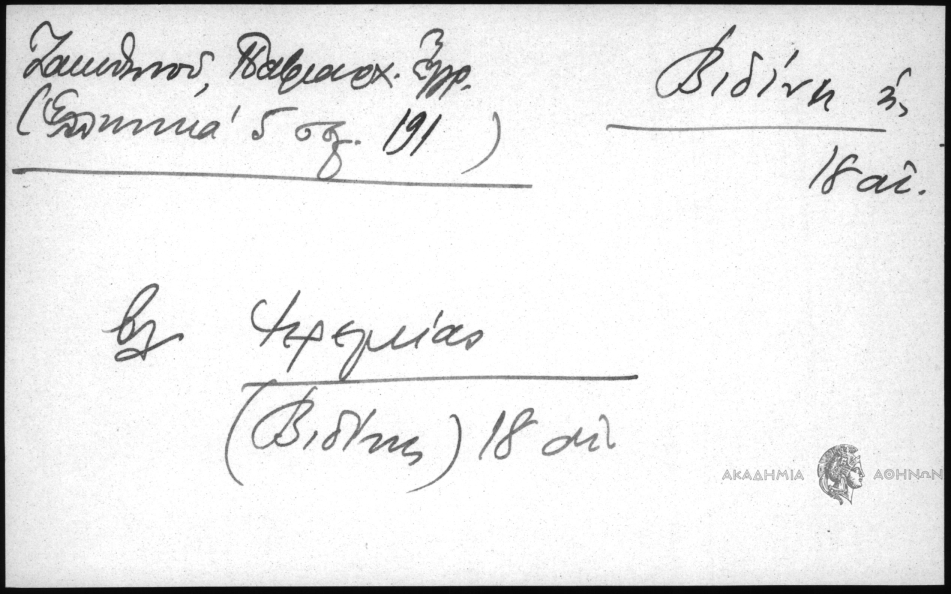 Ζακυθηνοῦ, Πατριαρχ. Ἔγγρ.
(Ἑλληνικά 5 σελ. 191)
Βιδίνη ἡ,
18 αἰ.
βλ Ἱερεμίας
(Βιδίνης) 18 αἰ
ΑΚΑΔΗΜΙΑ ΑΘΗΝΩΝ